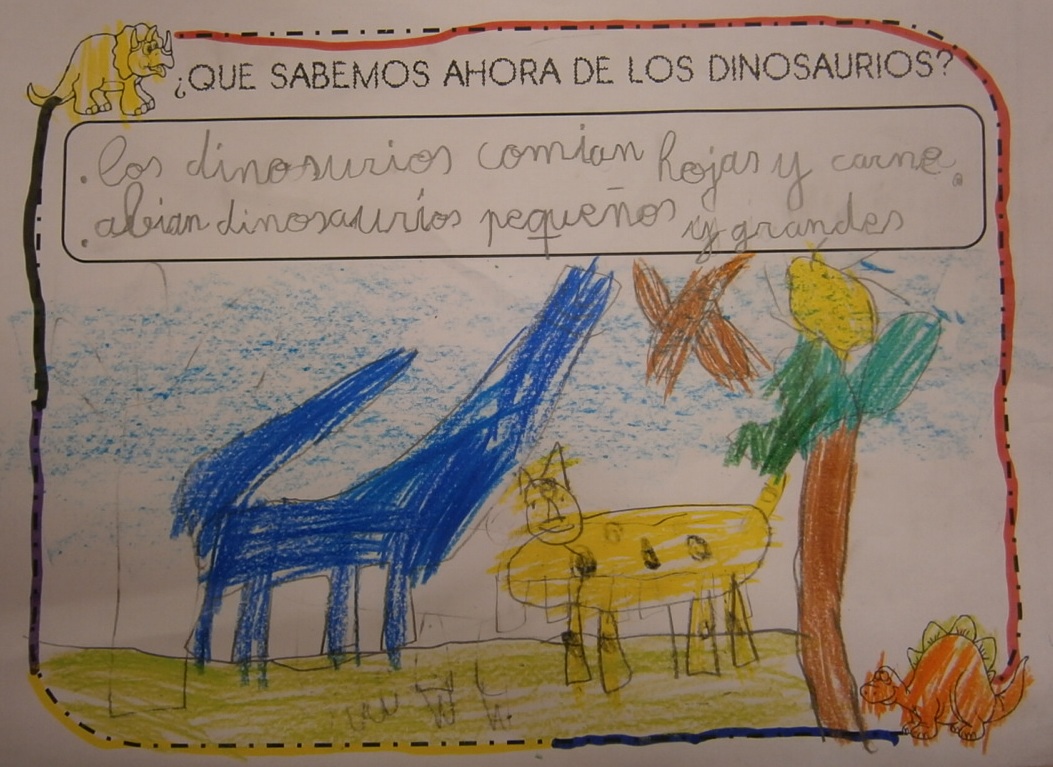 ¿QUE SABEMOS AHORA DE LOS DINOSAURIOS?
. los dinosurios comian hojas y carne.
. abian dinosaurios pequeños y grandes